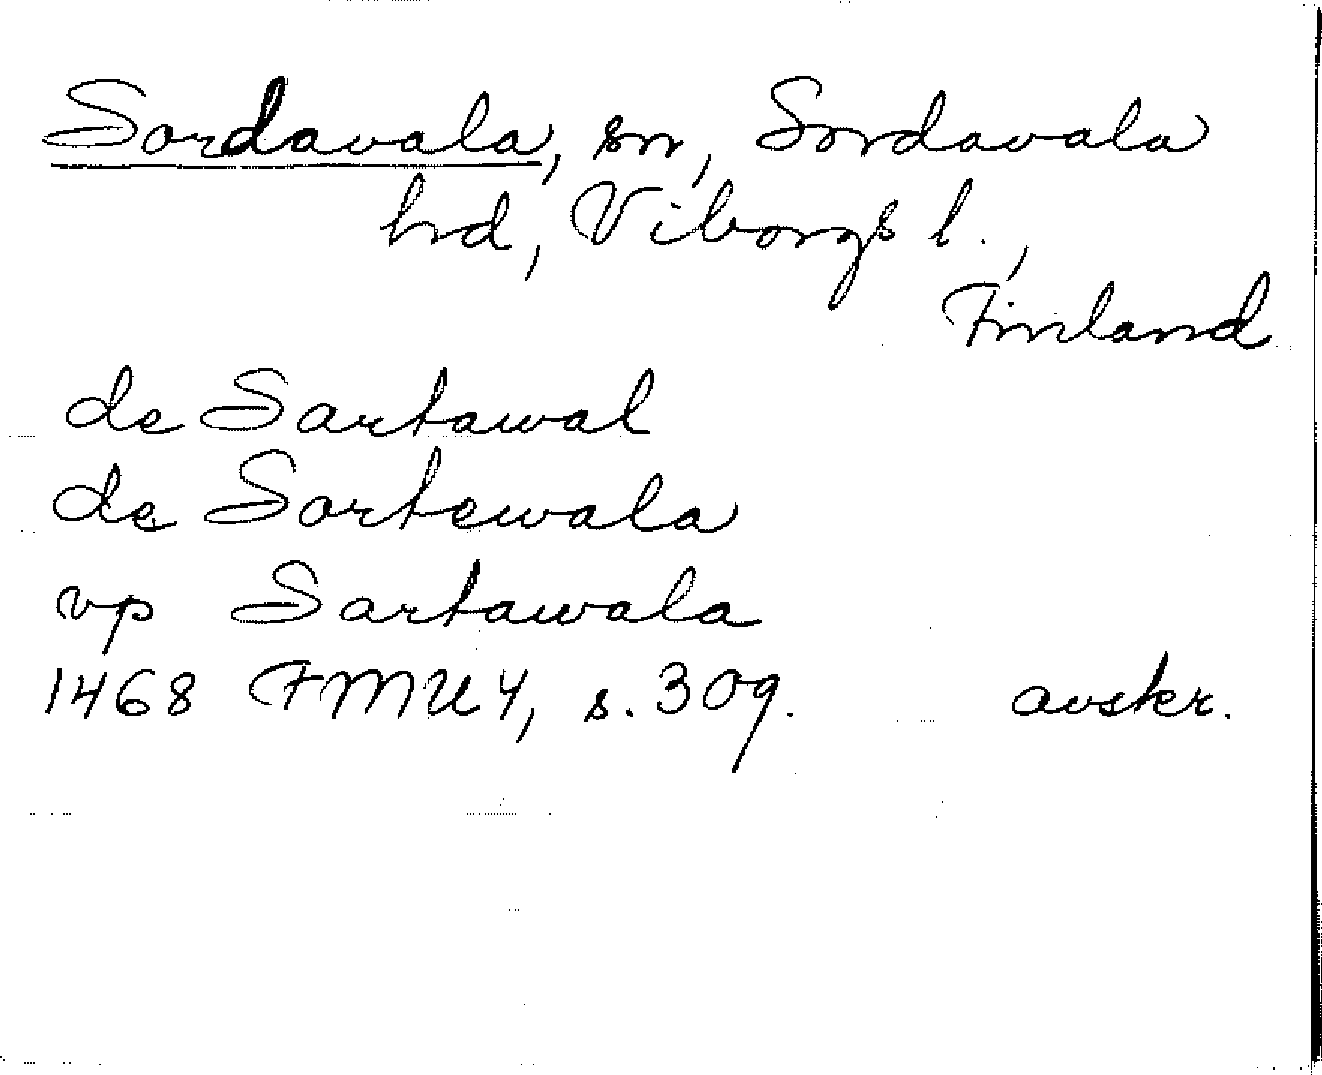 Sordavala, sn, Sordavala
hd, Viborgs l.,
Finland
de Sartawal
de Sortewala
vp Sartawala
1468 FMU 4, s. 309. avskr.